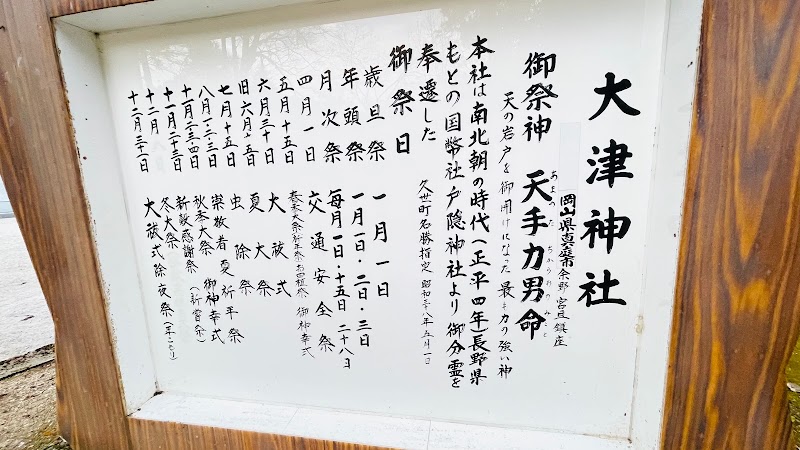 大津神社
岡山県真庭市余野 宮旦鎮座
御祭神 天手力男命
あまの た ちからおのみこと
天の岩戸を御開けになった最も力の強い神
本社は南北朝の時代(正平四年)長野県
もとの国幣社戸隠神社より御分霊を
奉遷した
久世町名勝指定 昭和三八年五月一日
御祭日
歳旦祭 一月一日
年頭祭 一月一日・二日・三日
月次祭 毎月一日・十五日 二十八日
四月一日 交通安全祭
五月十五日 春季大祭 御神幸式
六月三十日 大祓式
旧六月十五日 夏大祭
七月十五日 虫除祭
八月一・二・三日 崇敬者夏祈平祭
十一月三・四日 秋季大祭 御神幸式
十一月二十三日 新穀感謝祭(新嘗祭)
十二月 冬大祭
十二月三十一日 大祓式除夜祭(年ごもり)